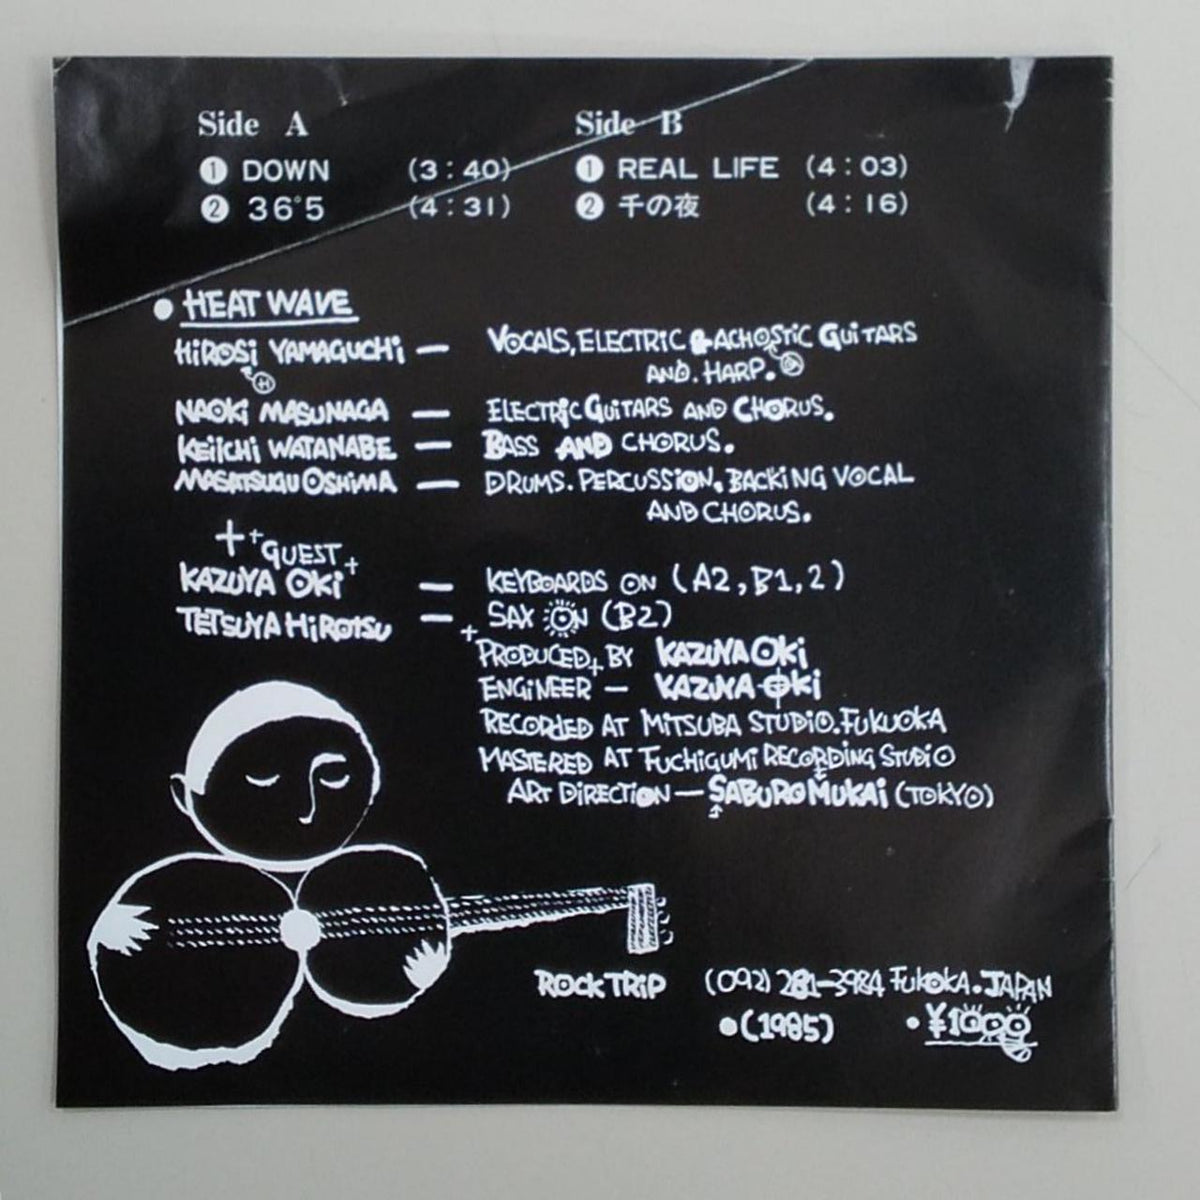 Side A
① DOWN (3:40)
② 36°5 (4:31)
Side B
① REAL LIFE (4:03)
② 千の夜 (4:16)
● HEAT WAVE
HiROSi YAMAGUCHi — VOCALS, ELECTRiC & ACHOSTiC GUiTARS
H
AND. HARP.
NAOKi MASUNAGA — ELECTRiC GUiTARS AND CHORUS.
KEiiCHi WATANABE — BASS AND CHORUS.
MASATSUGU OSHiMA — DRUMS. PERCUSSiON, BACKiNG VOCAL
AND CHORUS.
++GUEST+
KAZUYA OKi — KEYBOARDS ON (A2, B1, 2)
TETSUYA HiROTSU — SAX ON (B2)
+PRODUCED+ BY KAZUYA OKi
ENGiNEER — KAZUYA OKi
RECORDED AT MiTSUBA STUDiO. FUKUOKA
MASTERED AT FUCHiGUMi RECORDiNG STUDiO
ART DiRECTiON — SABURO MUKAi (TOKYO)
ROCK TRiP (092) 281-3984 FUKOKA. JAPAN
●(1985) •¥1000